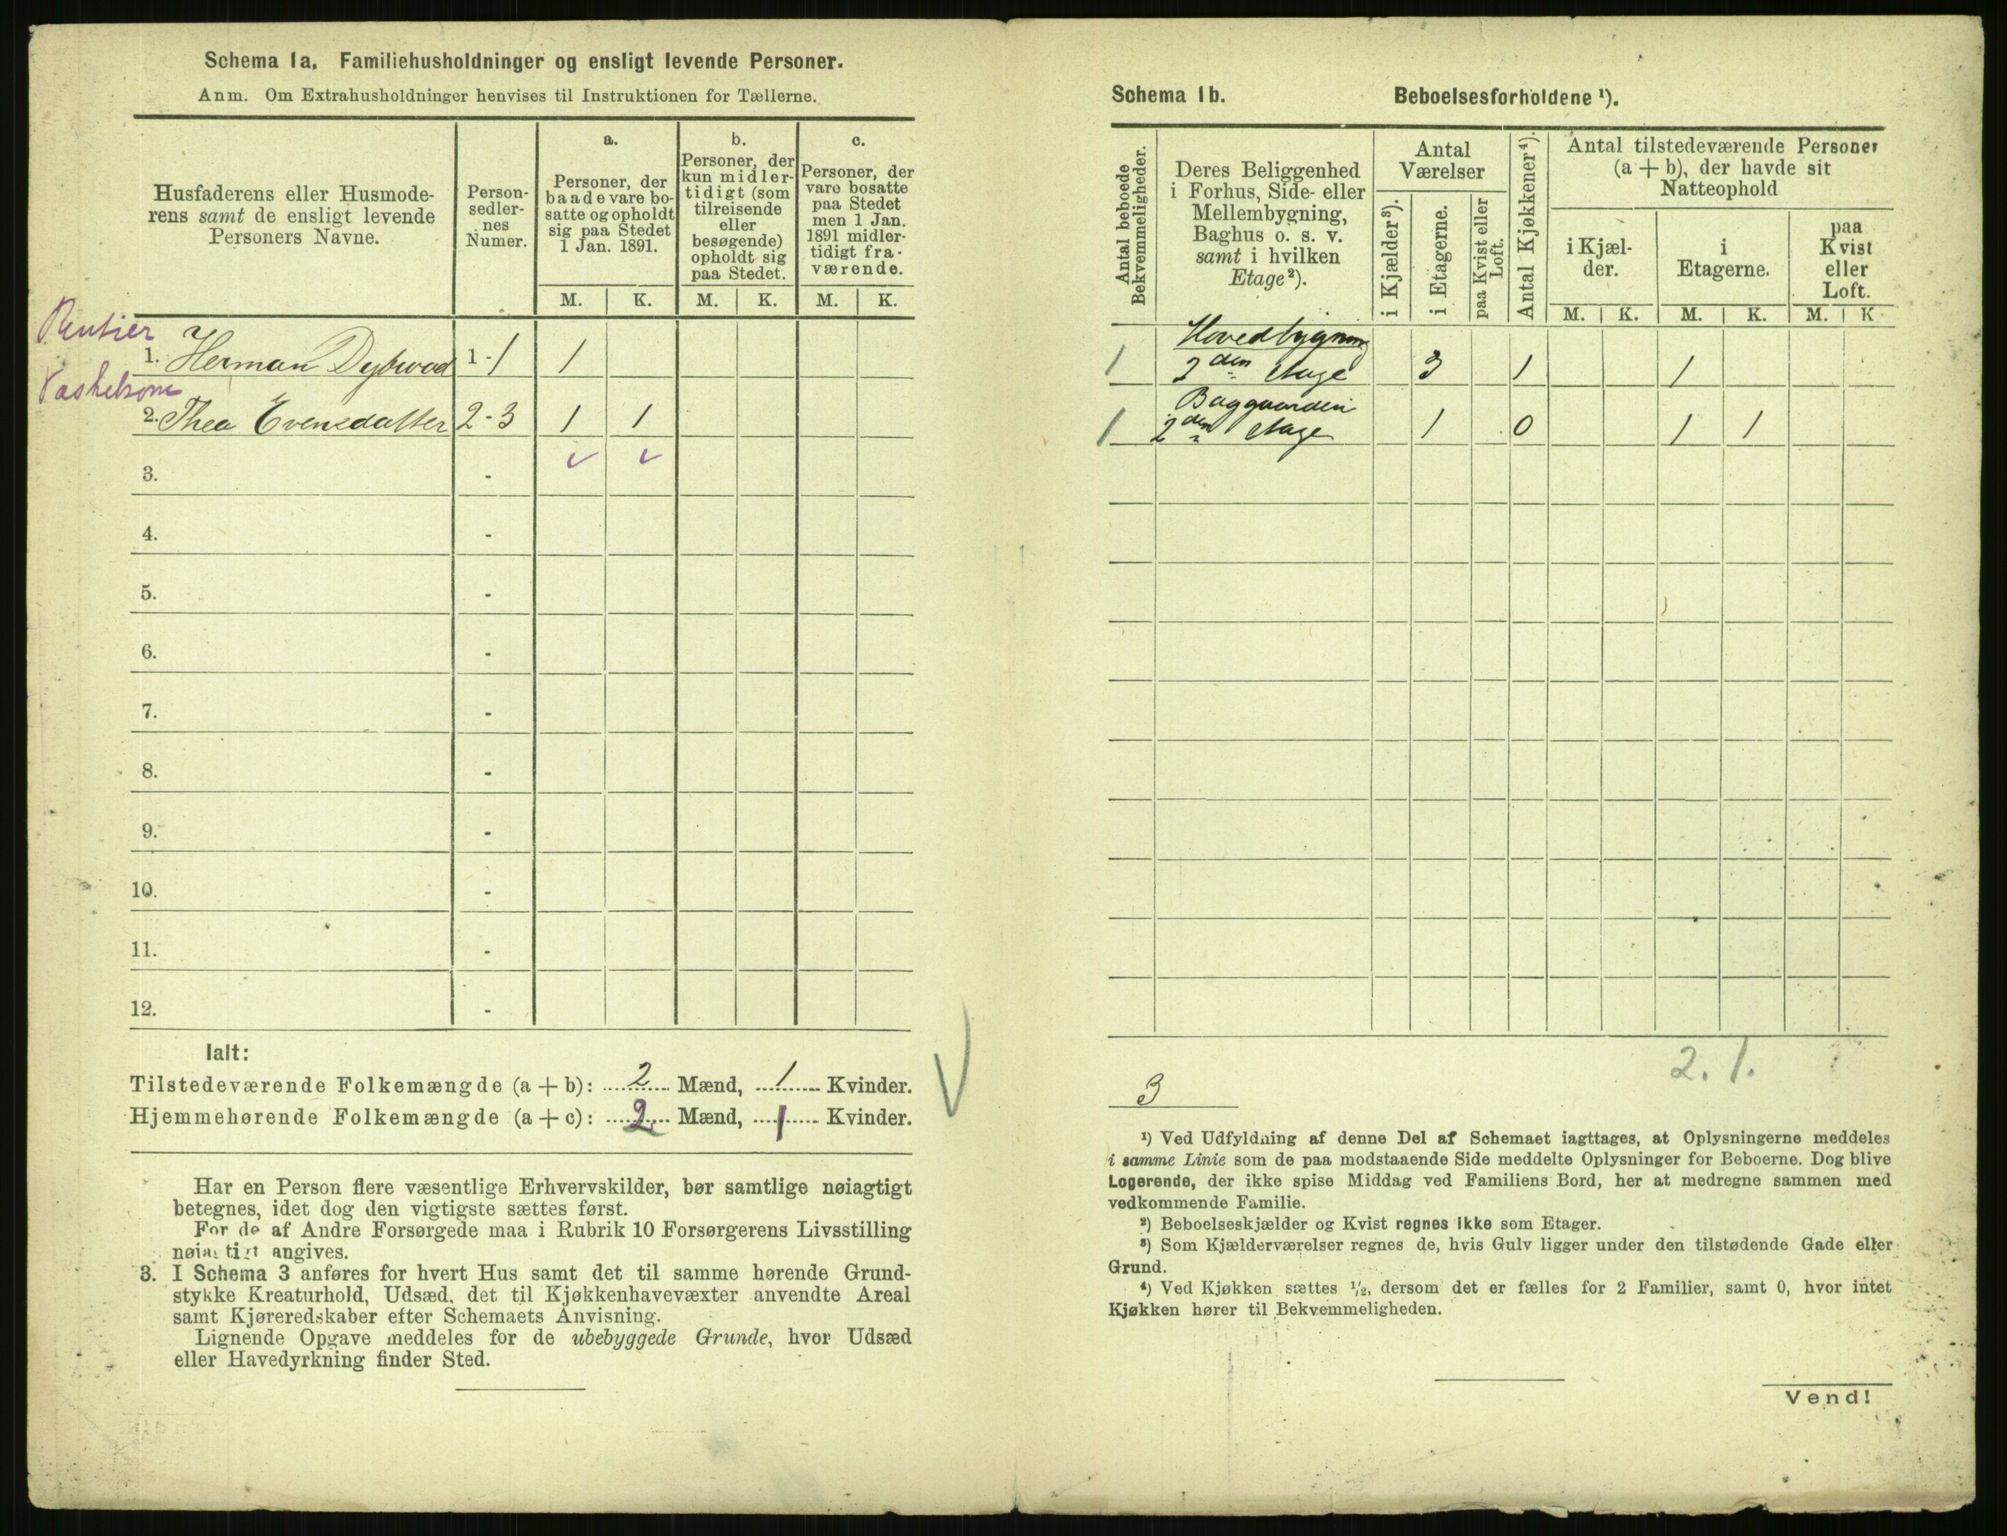 Schema 1a. Familiehusholdninger og ensligt levende Personer.
Anm. Om Extrahusholdninger henvises til Instruktionen for Tællerne.
Husfaderens eller Husmoderens samt de ensligt levende Personers Navne.
Personsedlernes Numer.
a.
Personer, der baade vare bosatte og opholdt sig paa Stedet 1 Jan. 1891.
b.
Personer, der kun midlertidigt (som tilreisende eller besøgende) opholdt sig paa Stedet.
c.
Personer, der vare bosatte paa Stedet men 1 Jan. 1891 midlertidigt fraværende.
M. K. M. K. M. K.
Rentier
1. Herman Dybwad 1-1 1
Vaskekone
2. Thea Evensdatter 2-3 1 1
3. -
4. -
5. -
6. -
7. -
8. -
9. -
10. -
11. -
12. -
Ialt:
Tilstedeværende Folkemængde (a + b): 2 Mænd, 1 Kvinder.
Hjemmehørende Folkemængde (a + c): 2 Mænd, 1 Kvinder.
Har en Person flere væsentlige Erhvervskilder, bør samtlige nøiagtigt
betegnes, idet dog den vigtigste sættes først.
For de af Andre Forsørgede maa i Rubrik 10 Forsørgerens Livsstilling
nøiagtigt angives.
3. I Schema 3 anføres for hvert Hus samt det til samme hørende Grund-
stykke Kreaturhold, Udsæd, det til Kjøkkenhavevæxter anvendte Areal
samt Kjøreredskaber efter Schemaets Anvisning.
Lignende Opgave meddeles for de ubebyggede Grunde, hvor Udsæd
eller Havedyrkning finder Sted.
Schema 1b. Beboelsesforholdene ¹).
Antal beboede Bekvemmeligheder.
Deres Beliggenhed i Forhus, Side- eller Mellembygning, Baghus o. s. v. samt i hvilken Etage²).
Antal Værelser
i Kjælder³).
i Etagerne.
paa Kvist eller Loft.
Antal Kjøkkener⁴).
Antal tilstedeværende Personer (a + b), der havde sit Natteophold
i Kjælder.
i Etagerne.
paa Kvist eller Loft.
M. K. M. K. M. K
Hovedbygning
1 2den Etage 3 1 1
Baggaarden
1 2den Etage 1 0 1 1
2. 1.
3
¹) Ved Udfyldning af denne Del af Schemaet iagttages, at Oplysningerne meddeles
i samme Linie som de paa modstaaende Side meddelte Oplysninger for Beboerne. Dog blive
Logerende, der ikke spise Middag ved Familiens Bord, her at medregne sammen med
vedkommende Familie.
²) Beboelseskjælder og Kvist regnes ikke som Etager.
³) Som Kjælderværelser regnes de, hvis Gulv ligger under den tilstødende Gade eller
Grund.
⁴) Ved Kjøkken sættes ½, dersom det er fælles for 2 Familier, samt 0, hvor intet
Kjøkken hører til Bekvemmeligheden.
Vend!